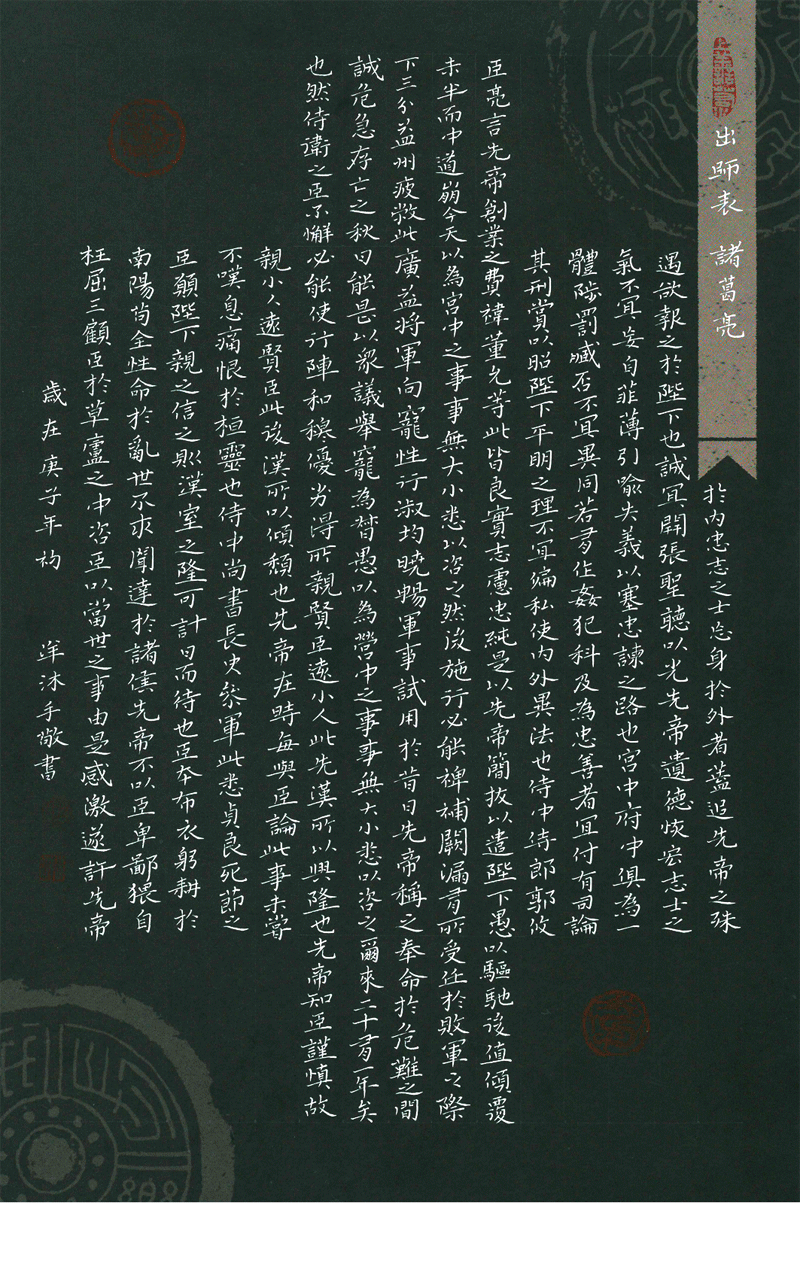 出師表 諸葛亮
於內忠志之士忘身於外者蓋追先帝之殊
遇欲報之於陛下也誠宜開張聖聽以光先帝遺德恢宏志士之
氣不宜妄自菲薄引喻失義以塞忠諫之路也宮中府中俱為一
體陟罰臧否不宜異同若有作姦犯科及為忠善者宜付有司論
其刑賞以昭陛下平明之理不宜偏私使內外異法也侍中侍郎郭攸
臣亮言先帝創業之費禕董允等此皆良實志慮忠純是以先帝簡拔以遺陛下愚以驅馳後值傾覆
未半而中道崩今天以為宮中之事事無大小悉以咨之然後施行必能裨補闕漏有所受任於敗軍之際
下三分益州疲敝此廣益將軍向寵性行淑均曉暢軍事試用於昔日先帝稱之奉命於危難之間
誠危急存亡之秋日能是以眾議舉寵為督愚以為營中之事事無大小悉以咨之爾來二十有一年矣
也然侍衛之臣不懈必能使行陣和穆優劣得所親賢臣遠小人此先漢所以興隆也先帝知臣謹慎故
親小人遠賢臣此後漢所以傾頹也先帝在時每與臣論此事未嘗
不嘆息痛恨於桓靈也侍中尚書長史參軍此悉貞良死節之
臣願陛下親之信之則漢室之隆可計日而待也臣本布衣躬耕於
南陽苟全性命於亂世不求聞達於諸侯先帝不以臣卑鄙猥自
枉屈三顧臣於草廬之中咨臣以當世之事由是感激遂許先帝
歲在庚子年 沐手敬書